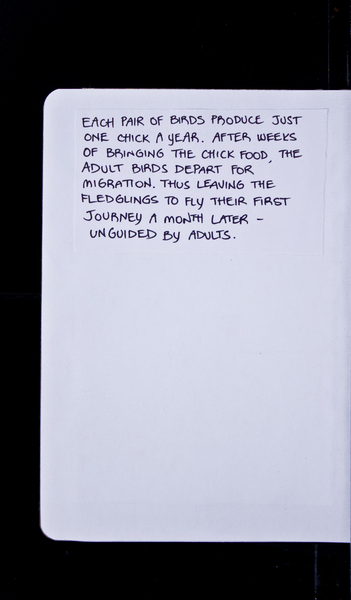 EACH PAIR OF BIRDS PRODUCE JUST
ONE CHICK A YEAR. AFTER WEEKS
OF BRINGING THE CHICK FOOD, THE
ADULT BIRDS DEPART FOR
MIGRATION. THUS LEAVING THE
FLEDGLINGS TO FLY THEIR FIRST
JOURNEY A MONTH LATER -
UNGUIDED BY ADULTS.